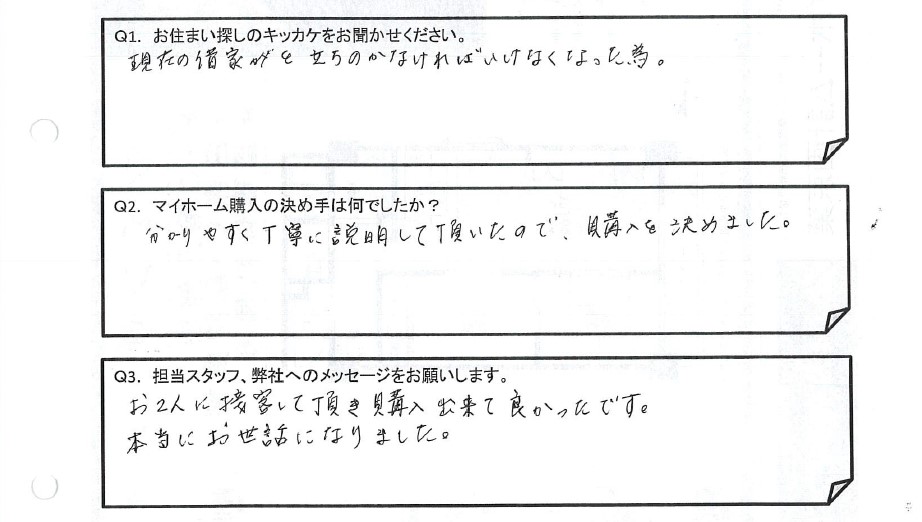 Q1. お住まい探しのキッカケをお聞かせください。
現在の借家がを立ちのかなければいけなくなった為。
Q2. マイホーム購入の決め手は何でしたか？
分かりやすく丁寧に説明して頂いたので、購入を決めました。
Q3. 担当スタッフ、弊社へのメッセージをお願いします。
お2人に接客して頂き購入出来て良かったです。
本当にお世話になりました。